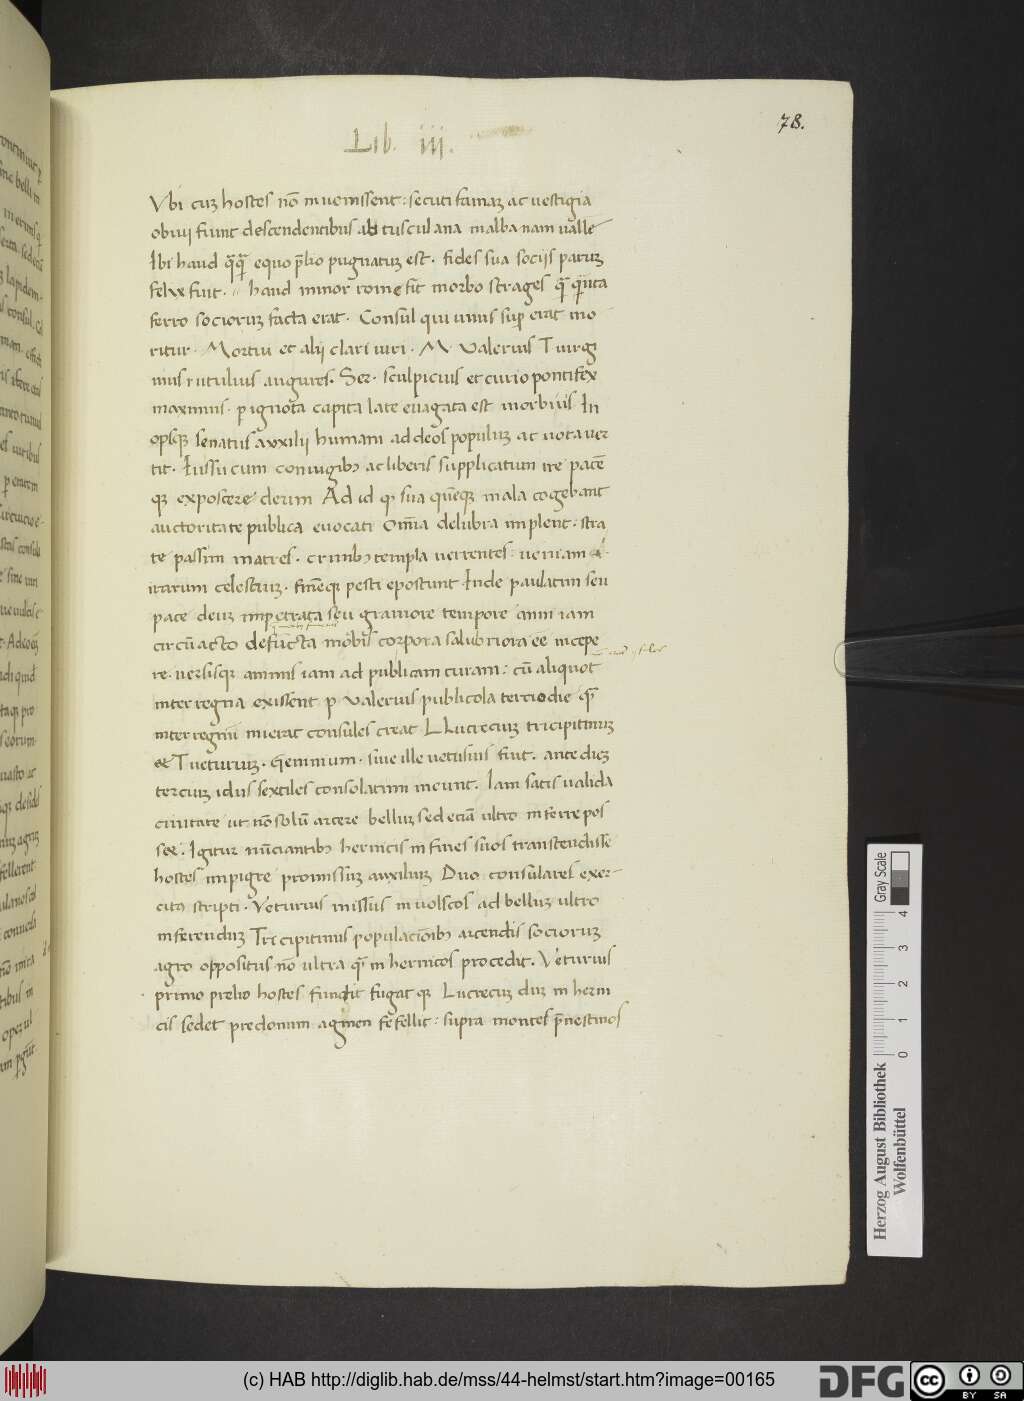 Lib. iii.
78.
Vbi cuȝ hostes nō inuenissent: secuti famaȝ ac uestigia
obuii fiunt descendentibus ab tusculana in albanam uallē
Ibi haud q̄q̄ equo p̄lio pugnatuȝ est. fides sua sociis parum
felix fuit. haud minor rome fit morbo strages q̄ q̄nta
ferro sociorum facta erat. Consul qui unus sup erat mo
ritur. Mortui et alii clari uiri. M. Valerius T uirgi
nius rutulius augures. Ser. sculpicius et curio pontifex
maximus. p ignota capita late euagata est morbius In
opsq; senatus auxilii humani ad deos populum ac uota uer
tit. Iussi cum coniugibȝ ac liberis supplicatum ire pacē
q; exposcere deum Ad id qȝ sua quēq; mala cogebant
auctoritate publica euocati Omīa delubra implent. stra
te passim matres. crinibȝ templa uerrentes: ueniam
irarum celestium. finēq; pesti eposcunt Inde paulatim seu
pace deum impetrata seu grauiore tempore anni iam
circūacto defūncta morbis corpora salubriora eē incepe
re. uersisq; animis iam ad publicam curam: cū aliquot
interregna exissent p Valerius publicola tertio die q̄
interregnū inierat consules creat L Lucreciuȝ tricipitinuȝ
& T ueturiuȝ. Geminum. siue ille uetusius fuit. ante dieȝ
terciuȝ idus sextiles consolatum ineunt. Iam satis ualida
ciuitate ut nō solū arcere bellum sed eciā ultro inferre pos
set. Igitur nūciantibȝ hernicis in fines suos transcendisse
hostes impigre promissuȝ auxiliuȝ Duo consulares exer
citȝ scripti. Veturius missus in uolscos ad belluȝ ultro
inferenduȝ Tricipitinus populaciōibȝ arcendis sociorum
agro oppositus nō ultra q̄ in hernicos procedit. Veturius
primo prelio hostes fundit fugat q; Lucreciuȝ dum in herni
cis sedet predonum agmen fefellit: supra montes p̄nestinos
Herzog August Bibliothek
Wolfenbüttel
Gray Scale
0 1 2 3 4
(c) HAB http://diglib.hab.de/mss/44-helmst/start.htm?image=00165
DFG
cc
BY SA